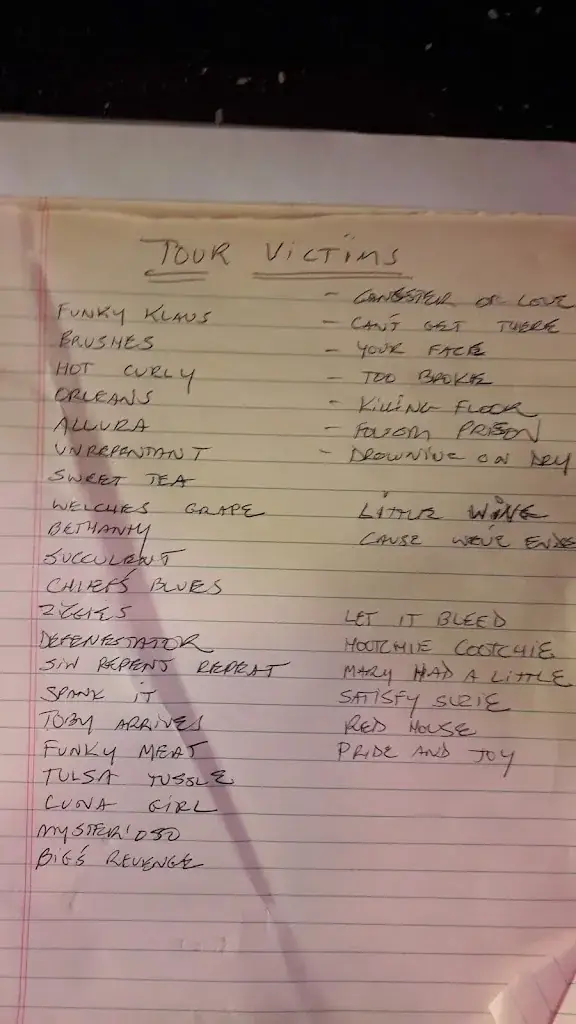 TOUR VICTIMS
FUNKY KLAUS
BRUSHES
HOT CURLY
ORLEANS
ALLURA
UNREPENTANT
SWEET TEA
WELCHES GRAPE
BETHANY
SUCCULENT
CHIEF'S BLUES
ZIGGIES
DEFENESTATOR
SIN REPENT REPEAT
SPANK IT
TOBY ARRIVES
FUNKY MEAT
TULSA TUSSLE
LUNA GIRL
MYSTERIOSO
BIG'S REVENGE
- GANGSTER OF LOVE
- CAN'T GET THERE
- YOUR FACE
- TOO BROKE
- KILLING FLOOR
- FOLSOM PRISON
- DROWNING ON DRY
LITTLE WING
CAUSE WE'VE ENDE
LET IT BLEED
HOOTCHIE COOTCHIE
MARY HAD A LITTLE
SATISFY SUZIE
RED HOUSE
PRIDE AND JOY